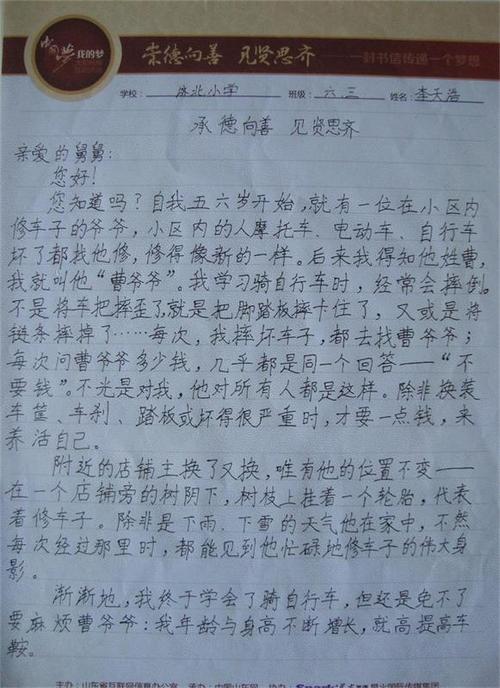 中国梦 我的梦
崇德向善 见贤思齐 一封书信传递一个梦想
学校: 小学 班级: 六.三 姓名: 李天浩
承德向善 见贤思齐
亲爱的舅舅:
您好!
您知道吗?自我五六岁开始,就有一位在小区内
修车子的爷爷,小区内的人摩托车、电动车、自行车
坏了都找他修,修得像新的一样。后来我得知他姓曹,
我就叫他“曹爷爷”。我学习骑自行车时,经常会摔倒。
不是将车把摔歪了,就是把脚踏板摔卡住了,又或是将
链条摔掉了……每次,我摔坏车子,都去找曹爷爷;
每次问曹爷爷多少钱,几乎都是同一个回答——“不
要钱”。不光是对我,他对所有人都是这样。除非换装
车筐、车刹、踏板或坏得很严重时,才要一点钱,来
养活自己。
附近的店铺主换了又换,唯有他的位置不变——
在一个店铺旁的树阴下,树枝上挂着一个轮胎,代表
着修车子。除非是下雨、下雪的天气他在家中,不然
每次经过那里时,都能见到他忙碌地修车子的伟大身
影。
渐渐地,我终于学会了骑自行车,但还是免不了
要麻烦曹爷爷:我年龄与身高不断增长,就高提高车
鞍。
主办:山东省互联网信息办公室 承办:中国山东网 协办: Spark 星火国际传媒集团